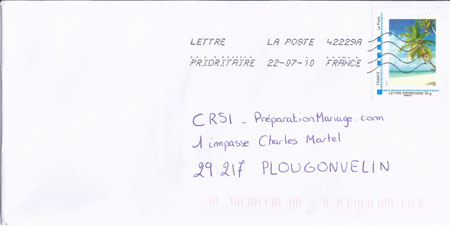 LETTRE LA POSTE 42229A
PRIORITAIRE 22-07-10 FRANCE
La Poste
FRANCE
LETTRE PRIORITAIRE
CRSI - PréparationMariage.com
1 impasse Charles Martel
29 217 PLOUGONVELIN